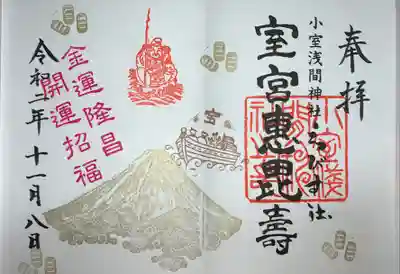 奉拝
小室浅間神社ゑびす社
室宮恵毘壽
宝
金運隆昌
開運招福
令和二年十一月八日